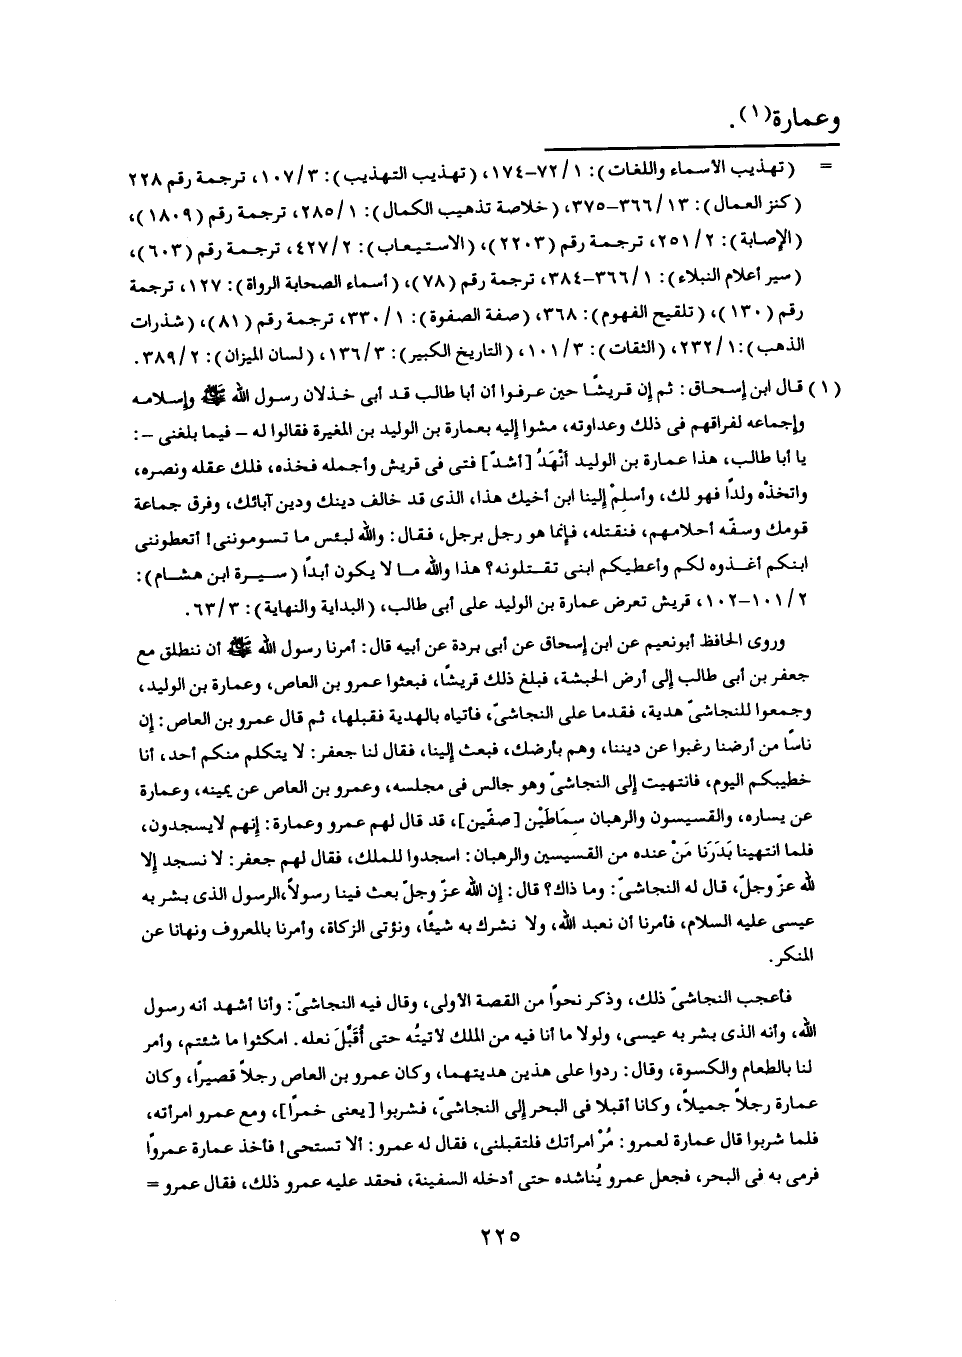 وعمارة(١).
= (تهذيب الأسماء واللغات): ١/ ٧٢–١٧٤، (تهذيب التهذيب): ٣/ ١٠٧، ترجمة رقم ٢٢٨
(كنز العمال): ١٣/ ٣٦٦–٣٧٥، (خلاصة تذهيب الكمال): ١/ ٢٨٥، ترجمة رقم (١٨٠٩)،
(الإصابة): ٢/ ٢٥١، ترجمة رقم (٢٢٠٣)، (الاستيعاب): ٢/ ٤٢٧، ترجمة رقم (٦٠٣)،
(سير أعلام النبلاء): ١/ ٣٦٦–٣٨٤، ترجمة رقم (٧٨)، (أسماء الصحابة الرواة): ١٢٧، ترجمة
رقم (١٣٠)، (تلقيح الفهوم): ٣٦٨، (صفة الصفوة): ١/ ٣٣٠، ترجمة رقم (٨١)، (شذرات
الذهب):١/ ٢٣٢، (الثقات): ٣/ ١٠١، (التاريخ الكبير): ٣/ ١٣٦، (لسان الميزان): ٢/ ٣٨٩.
(١) قال ابن إسحاق: ثم إن قريشًا حين عرفوا أن أبا طالب قد أبى خذلان رسول الله ﷺ وإسلامه
وإجماعه لفراقهم فى ذلك وعداوته، مشوا إليه بعمارة بن الوليد بن المغيرة فقالوا له – فيما بلغنى –:
يا أبا طالب، هذا عمارة بن الوليد أَنْهَدُ [أشدّ] فتى فى قريش وأجمله فخذه، فلك عقله ونصره،
واتخذْه ولدًا فهو لك، وأسلِمْ إلينا ابن أخيك هذا، الذى قد خالف دينك ودين آبائك، وفرق جماعة
قومك وسفّه أحلامهم، فنقتله، فإنما هو رجل برجل، فقال: والله لبئس ما تسومونني! أتعطونني
ابنكم أغذوه لكم وأعطيكم ابنى تقتلونه؟ هذا والله ما لا يكون أبدًا (سيرة ابن هشام):
٢/ ١٠١–١٠٢، قريش تعرض عمارة بن الوليد على أبى طالب، (البداية والنهاية): ٣/ ٦٣.
وروى الحافظ أبونعيم عن ابن إسحاق عن أبى بردة عن أبيه قال: أمرنا رسول الله ﷺ أن ننطلق مع
جعفر بن أبى طالب إلى أرض الحبشة، فبلغ ذلك قريشًا، فبعثوا عمرو بن العاص، وعمارة بن الوليد،
وجمعوا للنجاشىّ هدية، فقدما على النجاشىّ، فأتياه بالهدية فقبلها، ثم قال عمرو بن العاص: إن
ناسًا من أرضنا رغبوا عن ديننا، وهم بأرضك، فبعث إلينا، فقال لنا جعفر: لا يتكلم منكم أحد، أنا
خطيبكم اليوم، فانتهيت إلى النجاشىّ وهو جالس فى مجلسه، وعمرو بن العاص عن يمينه، وعمارة
عن يساره، والقسيسون والرهبان سِمَاطَيْن [صفّين]، قد قال لهم عمرو وعمارة: إنهم لايسجدون،
فلما انتهينا بَدَرَنا مَنْ عنده من القسيسين والرهبان: اسجدوا للملك، فقال لهم جعفر: لا نسجد إلا
لله عزّ وجلّ، قال له النجاشىّ: وما ذاك؟ قال: إن الله عزّ وجلّ بعث فينا رسولاً،الرسول الذى بشر به
عيسى عليه السلام، فأمرنا أن نعبد الله، ولا نشرك به شيئًا، ونؤتى الزكاة، وأمرنا بالمعروف ونهانا عن
المنكر.
فأعجب النجاشىّ ذلك، وذكر نحوًا من القصة الأولى، وقال فيه النجاشىّ: وأنا أشهد أنه رسول
الله، وأنه الذى بشر به عيسى، ولولا ما أنا فيه من الملك لأتيتُه حتى أُقَبِّلَ نعله. امكثوا ما شئتم، وأمر
لنا بالطعام والكسوة، وقال: ردوا على هذين هديتهما، وكان عمرو بن العاص رجلاً قصيرًا، وكان
عمارة رجلاً جميلاً، وكانا أقبلا فى البحر إلى النجاشىّ، فشربوا [يعنى خمرًا]، ومع عمرو امرأته،
فلما شربوا قال عمارة لعمرو: مُرْ امرأتك فلتقبلنى، فقال له عمرو: ألا تستحى! فأخذ عمارة عمروًا
فرمى به فى البحر، فجعل عمرو يُناشده حتى أدخله السفينة، فحقد عليه عمرو ذلك، فقال عمرو =
٢٢٥